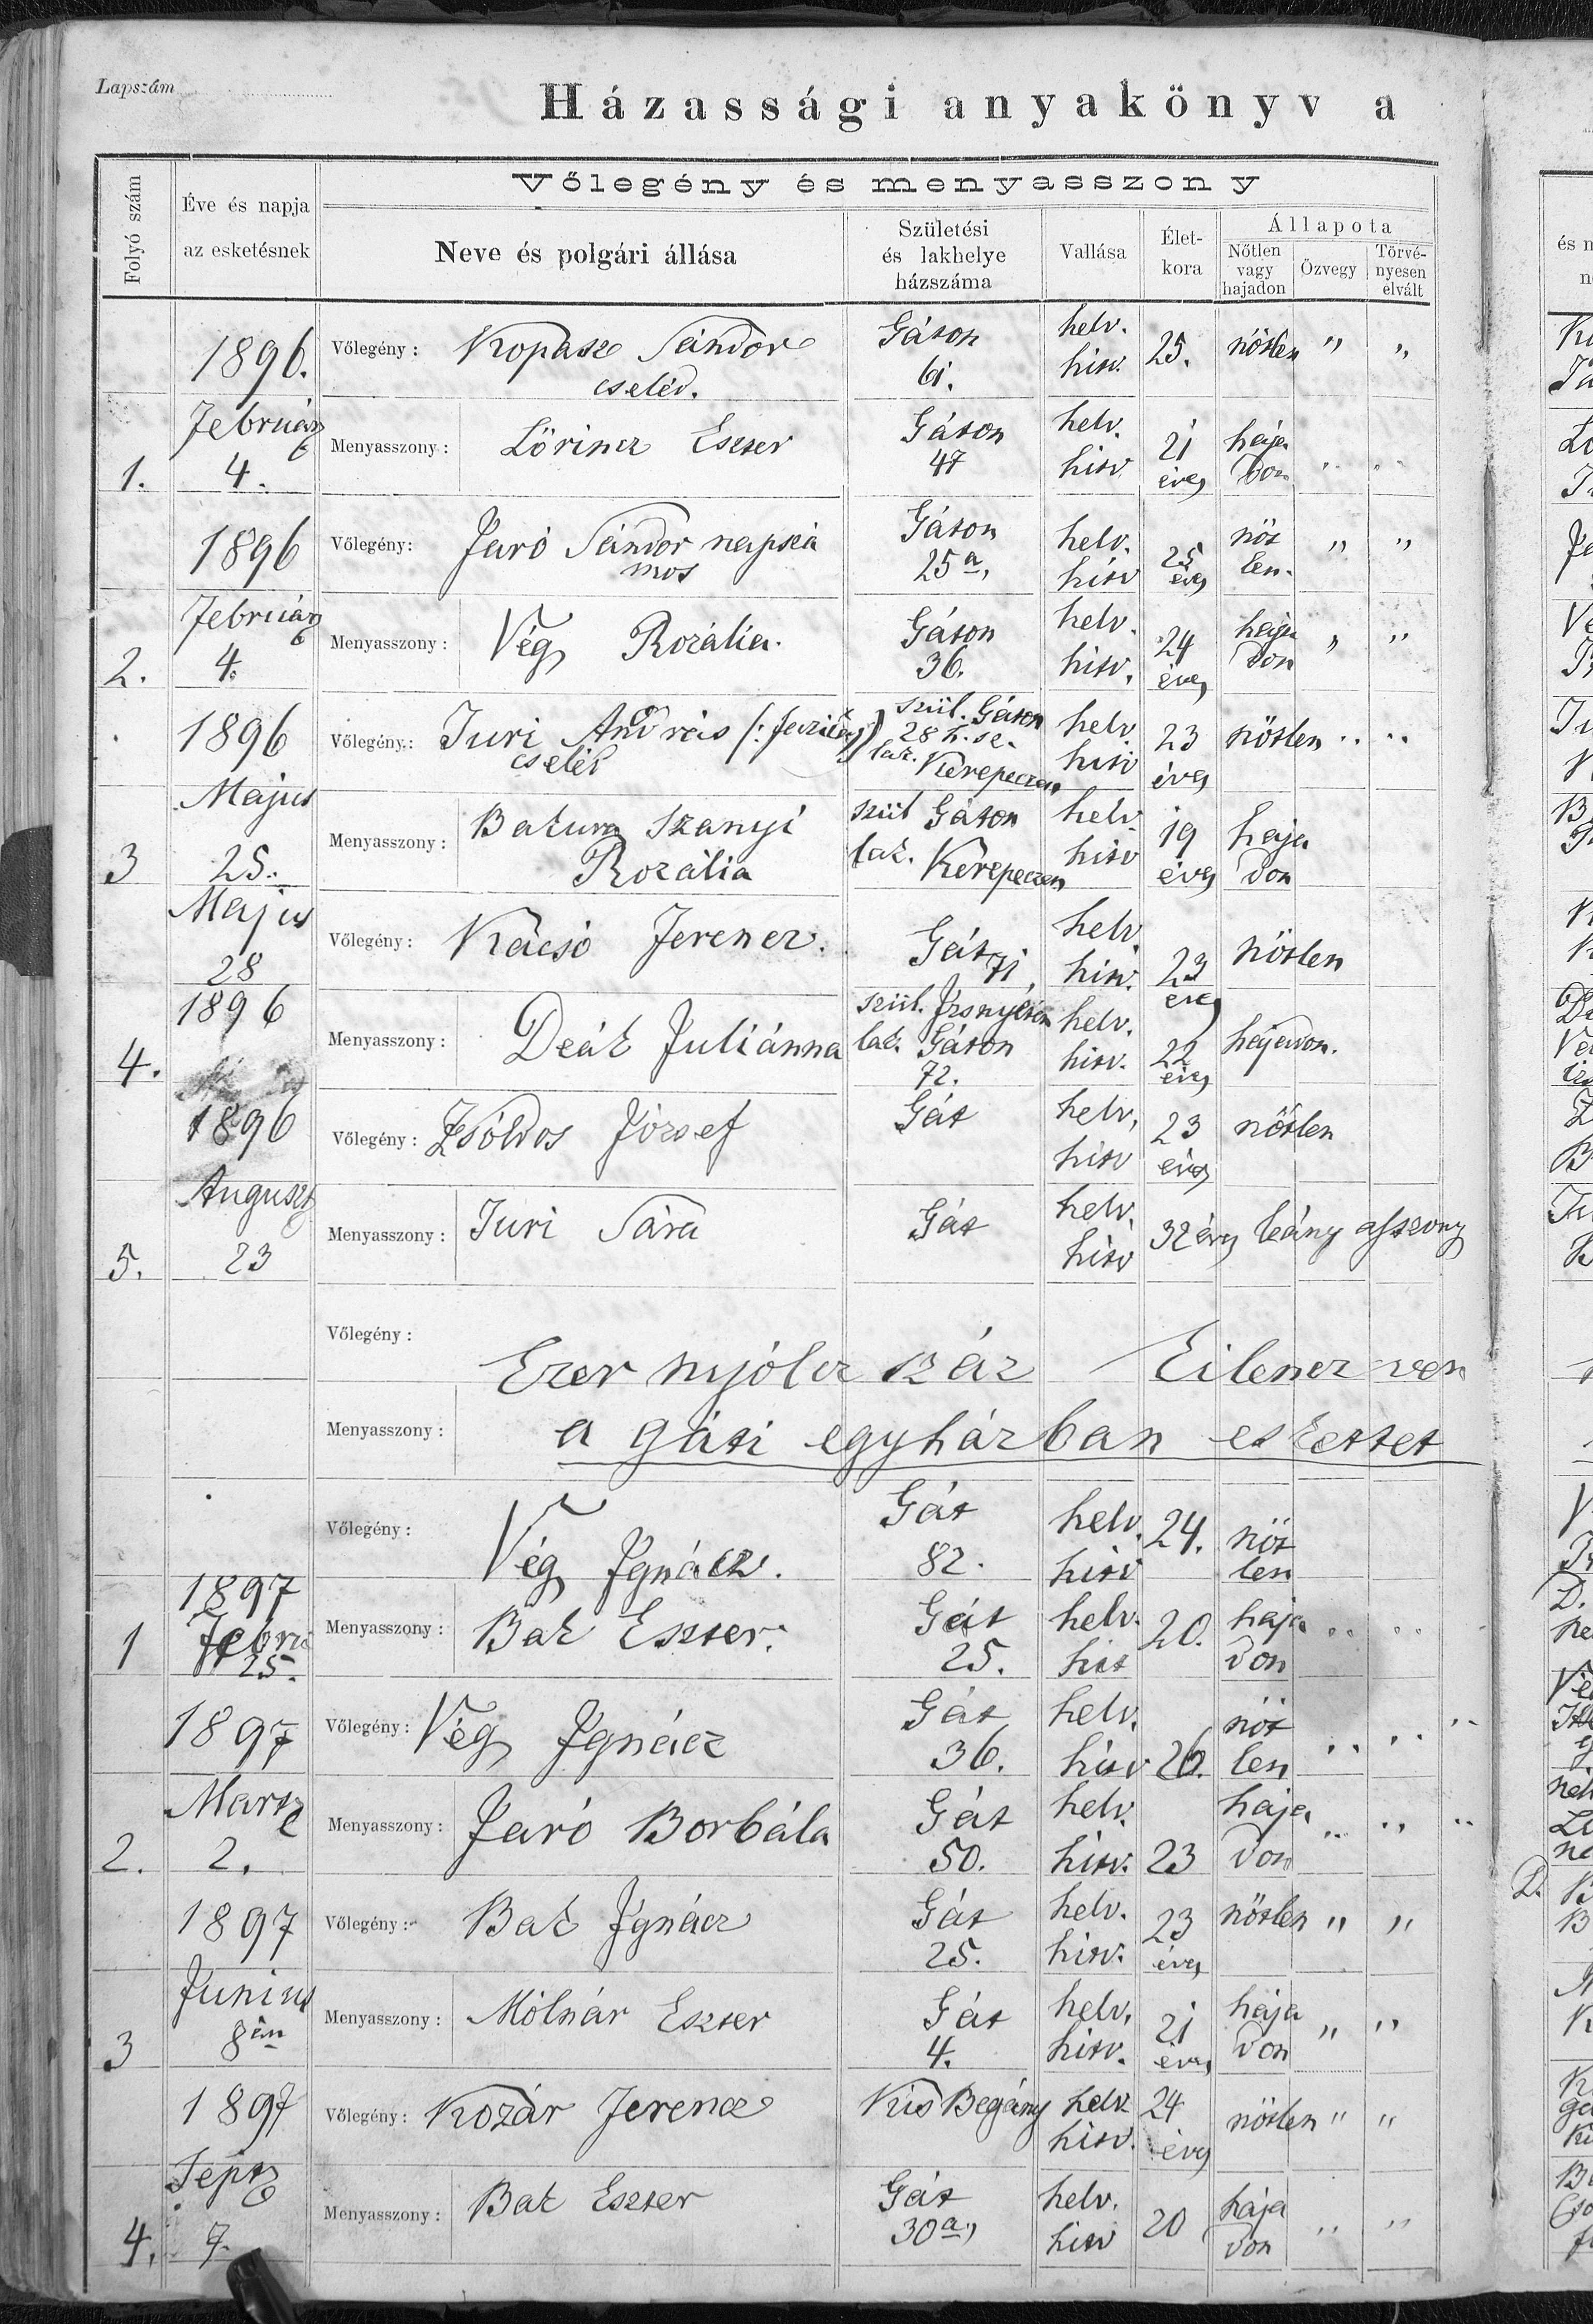 Lapszám
Házassági anyakönyv a
Folyó szám
Éve és napja
az esketésnek
Vőlegény és menyasszony
Neve és polgári állása
Születési
és lakhelye
házszáma
Vallása
Élet-
kora
Állapota
Nőtlen
vagy
hajadon
Özvegy
Törvé-
nyesen
elvált
1896.
Február
4.
1.
Vőlegény: Kopasz Sándor
cseléd.
Gáton
61.
helv.
hitv.
25.
nőtlen " "
Menyasszony: Lőrincz Eszter
Gáton
47
helv.
hitv.
21
éves
haja
don
1896
Február
4.
2.
Vőlegény: Jaró Sándor napszá
mos
Gáton
25a,
helv.
hitv
25
éves
nőt
len.
" "
Menyasszony: Vég Rozália.
Gáton
36.
helv.
hitv.
24
éves
haja
don
" "
1896
Majus
25.
3
Vőlegény: Turi András
cseléd
szül. Gáton
28 h. sz.
lak. Kerepeczen
helv
hitv
23
éves
nőtlen
Menyasszony: Rozália
szül Gáton
lak. Kerepeczen
helv.
hitv
19
éves
haja
don
Majus
28
1896
4.
Vőlegény: Kacsó Ferencz.
Gát 71,
helv.
hitv.
23
éves
nőtlen
Menyasszony: Deák Juliánna
szül.
lak. Gáton
72.
helv.
hitv.
22
éves
hajadon.
1896
Auguszt
23
5.
Vőlegény: Zsóldos József
Gát
helv,
hitv
23
éves
nőtlen
Menyasszony: Turi Sára
Gát
helv,
hitv
32 éves leány asszony
Vőlegény:
Ezer nyólcz száz Kilencz ven
Menyasszony:
a gáti egyházban eskettet
1897
Febru
25.
1
Vőlegény: Vég Ignácz.
Gát
82.
helv.
hitv
24.
nőt
len
Menyasszony: Bak Eszter.
Gát
25.
helv.
hit
20.
haja
don
1897
Martz
2.
2.
Vőlegény: Vég Ignácz
Gát
36.
helv.
hitv
26.
nőt
len
Menyasszony: Jaró Borbála
Gát
50.
helv.
hitv.
23
haja
don
1897
Junius
8án
3
Vőlegény: Bak Ignácz
Gát
25.
helv.
hitv.
23
éves
nőtlen " "
Menyasszony: Mólnár Eszter
Gát
4.
helv,
hitv.
21
éves
haja
don
" "
1897
Septz
7.
4.
Vőlegény: Kozár Ferencz
Kis Begány
helv
hitv.
24
éves
nőtlen " "
Menyasszony: Bak Eszter
Gát
30a,
helv.
hitv
20
haja
don